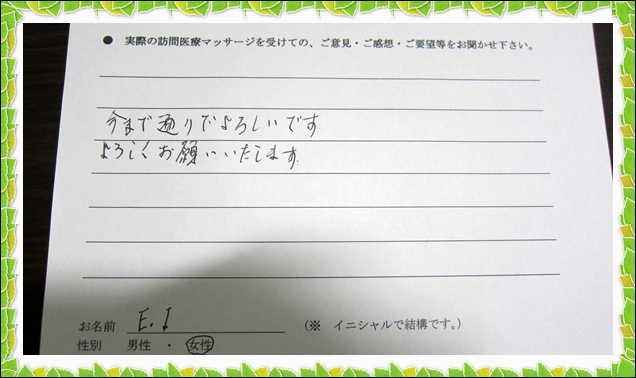 ● 実際の訪問医療マッサージを受けての、ご意見・ご感想・ご要望等をお聞かせ下さい。
今まで通りでよろしいです
よろしくお願いいたします
お名前 E.I (※ イニシャルで結構です。)
性別 男性 ・ 女性